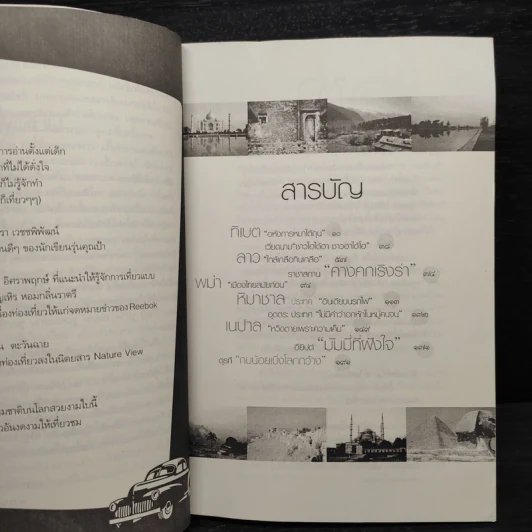 การอ่านตั้งแต่เด็ก
ที่ไม่ได้ตั้งใจ
ก็ไม่รู้จักทำ
ก็เที่ยวๆๆ)
รา เวชชพิพัฒน์
นดีๆ ของนักเรียนรุ่นคุณป้า
อิศราพฤกษ์ ที่แนะนำให้รู้จักการเที่ยวแบบ
หอมกลิ่นราตรี
ท่องเที่ยวให้แก่จดหมายข่าวของ Reebok
น ตะวันฉาย
ท่องเที่ยวลงในนิตยสาร Nature View
มชาติบนโลกสวยงามใบนี้
วอันงดงามให้เที่ยวชม
สารบัญ
ทิเบต “อหังการหมาใต้ถุน” ๑๐
เวียดนาม “ชาวไอโอ้เอา ชาวฮาโอ่โฮ่” ๓๘
ลาว “ใกล้เกลือกินเกลือ” ๕๗
ราชสถาน “คางคกเริงร่า” ๗๔
พม่า “เมืองไทยสมัยก่อน” ๙๔
หิมาชาล ประเทศ “อินเดียบนรถไฟ” ๑๑๓
อุตตร ประเทศ “ไม่มีคำว่าอกหักในหมู่คนจน”
เนปาล “หวิดตายเพราะความเค็ม” ๑๔๙
อียิปต์ “มัมมี่ที่ฝังใจ”
ตุรกี “กบน้อยเมื่อโลกกว้าง”